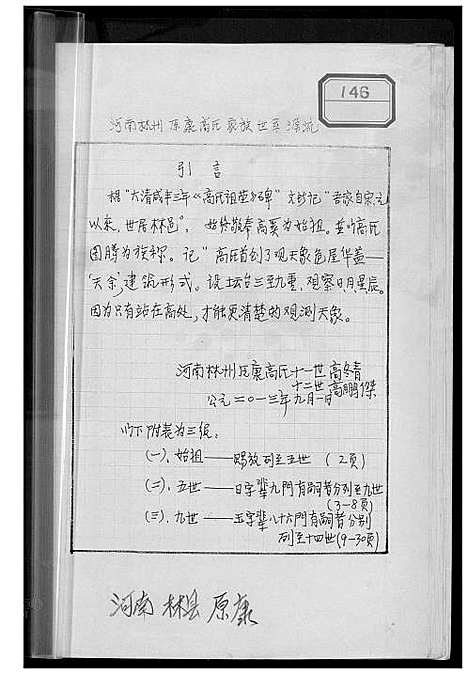 146
河南林州原康高氏家族世系源流
引言
根"大清咸丰三年《高氏祖茔》碑"文的记"吾家自宋元
以来,世居林邑",始终敬奉高奚为始祖。并以高氏
图腾为族称。记"高氏首创了观天象危屋华盖——
'天余'建筑形式。设坛台三至九重,观察日月星辰。
因为只有站在高处,才能更清楚的观测天象。
河南林州原康高氏十一世高冬青
十二世高鹏傑
公元二〇一三年九月一日
以下附表为三组:
(一).始祖——赐放列至五世 (2页)
(二).五世——日字辈九门有嗣者分列至九世
(3-8页)
(三).九世——玉字辈八十六门有嗣者分别
列至十四世(9-30页)
河南林县原康